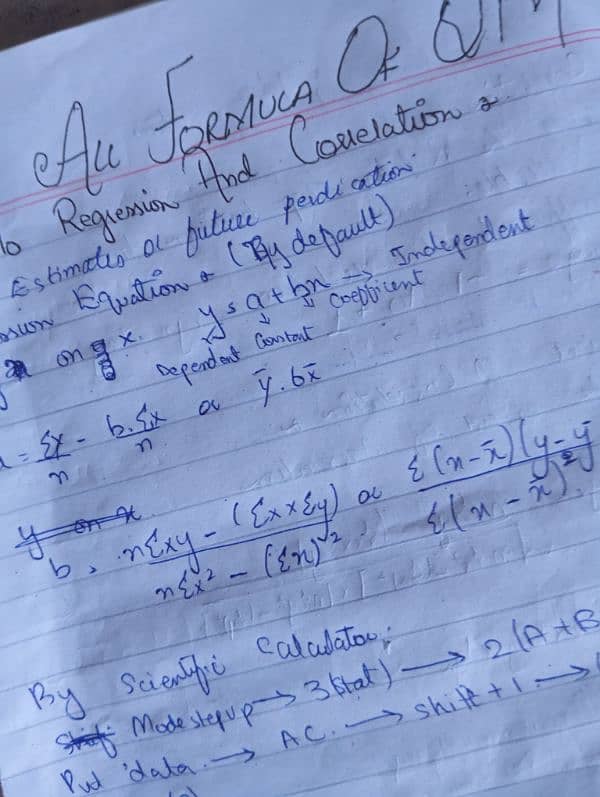 All FORMULA OF QM
Regression And Correlation :
Estimates or future perdication
Equation : (By default)
on x. y = a + bx → Independent
Dependent Constant Coefficient
= Σy/n - b.Σx/n or ȳ.bx̄
y on x
b = nΣxy - (Σx×Σy) / nΣx² - (Σx)² or Σ(x-x̄)(y-ȳ / Σ(x-x̄)²
By Scientific Calculator:
Shift Mode setup → 3(Stat) → 2(A+B
Put data. → AC. → Shift + 1 → (